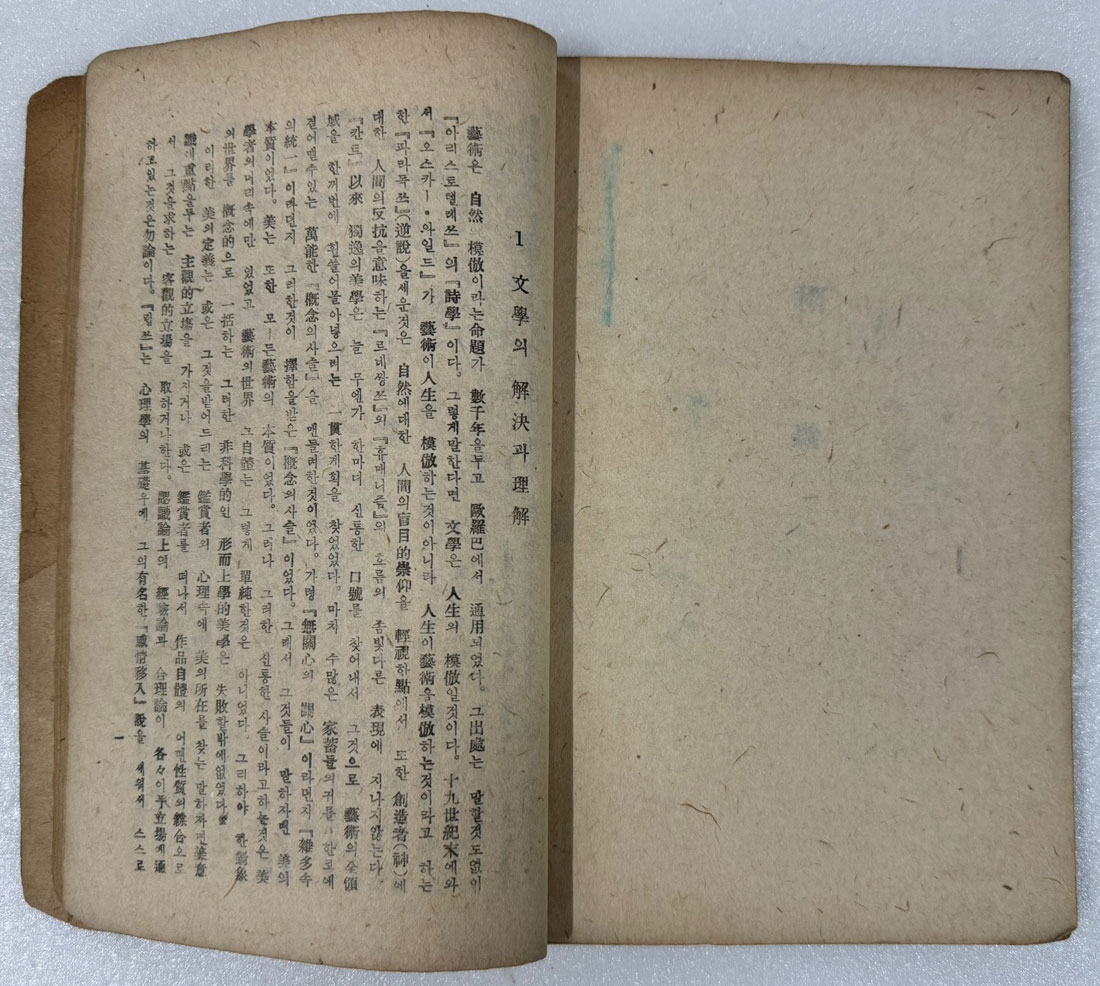 1 文學의 解決과 理解
藝術은 自然 模倣이라는命題가 數千年을두고 歐羅巴에서 通用되었다。그出處는 말할것도없이
『아리스토텔레쯔』의『詩學』이다。그렇게말한다면 文學은 人生의 模倣일것이다。十九世紀末에와
서『오스카ー・와일드』가 藝術이人生을 模倣하는것이아니라 人生이藝術을模倣하는것이라고 하는
한『파라독쓰』(逆說)을세운것은 自然에대한 人間의盲目的崇仰을 輕視하點에서 또한 創造者(神)에
대한 人間의反抗을意味하는『르네쌍쓰』의『휴매니즘』의 흐름의 좀빛다른 表現에 지나지않는다。
『칸트』以來 獨逸의美學은 늘 무엔가 한마디 신통한 口號를 찾어내서 그것으로 藝術의全領
域을 한꺼번에 휩쓸어몰아넣으려는 一貫한계획을 찾었었다。마치 수많은 家蓄들의귀를 한코에
걸어맬수있는 萬能한『槪念의사슬』을 맨들려한것이었다。가령『無關心의 關心』이라던지『雜多속
의統一』이라던지 그러한것이 擇함을받은『槪念의사슬』이었다。그래서 그것들이 말하자면 美의
本質이었다。美는 또한 모ー든藝術의 本質이었다。그러나 그러한 신통한 사슬이라고하는것은 美
學者의머리속에만 있었고 藝術의世界 그自體는 그렇게 單純한것은 아니었다。그리하야 한對象
의世界를 槪念的으로 一括하는 그러한 非科學的인 形而上學的美學은 失敗할밖에없었다。
이러한 美의定義는 或은 그것을받어드리는 鑑賞者의 心理속에 美의所在를 찾는 말하자면美意
識에重點을두는 主觀的立場을 가지거나 或은 鑑賞者를 떠나서 作品自體의 어떤性質의綜合으로
서 그것을求하는 客觀的立場을 取하거나한다。認識論上의 經驗論과 合理論이 各々이두立場에通
하고있는것은勿論이다。『립쓰』는 心理學의 基礎우에 그의有名한『感情移入』說을 세워서 스스로
一